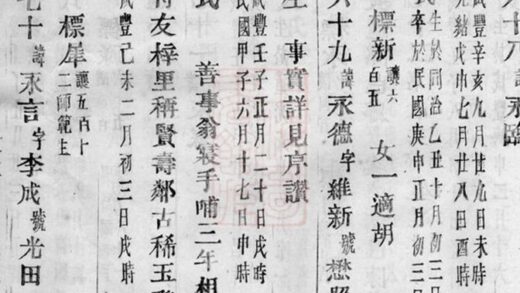 豐辛亥九月廿九日未時
光緒戊申七月廿八日酉時
生於同治乙丑十月初三
卒於民國庚申正月初三
標新 讓六百五 女一適胡
十九諱永德字維新號懋
事實詳見序讚
豐壬子正月二十日戌時
國甲子六月十七日申時
氏 善事翁襄手哺三年相
友梓里稱賢壽鄰古稀玉
豐己未二月初三日戌時
標犀 讓五百十二師範生
七十諱永言字李成號光田